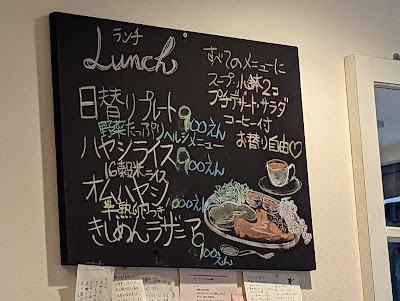 ランチ
Lunch
日替りプレート900えん
野菜たっぷりヘルシーメニュー
ハヤシライス900えん
16穀米ライス
オムハヤシ1000えん
半熟卵つき
きしめんラザニア900えん
すべてのメニューに
スープ・小鉢2コ
プチデザート・サラダ
コーヒー付
お替り自由♡